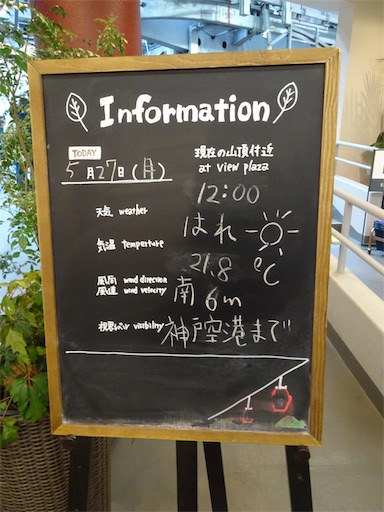 Information
TODAY
5月27日(月)
現在の山頂付近
at view plaza
12:00
天気 weather はれ
気温 temperture 21.8℃
風向 wind direction
風速 wind velocity 南 6m
visibility 神戸空港まで